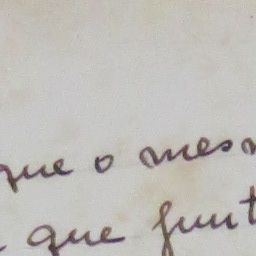 que o mes
que junt